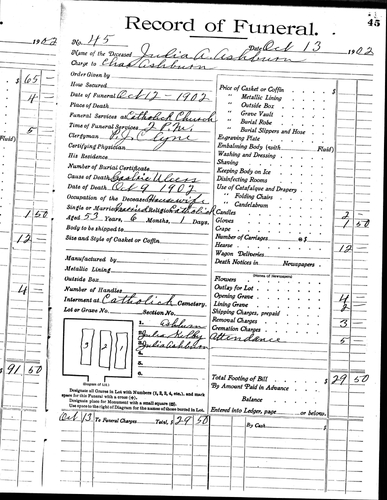 45
Record of Funeral.
No. 45 Date Oct 13 1902
Name of the Deceased Julia A. Ashburn
Charge to Chas Ashburn
Order Given by
How Secured
Date of Funeral Oct 12 - 1902
Place of Death
Funeral Services at Catholick Church
Time of Funeral Services 2 P.M.
Clergyman
Certifying Physician
His Residence
Number of Burial Certificate
Cause of Death Gastric Ulcers
Date of Death Oct 9 1902
Occupation of the Deceased Housewife
Single or Married Married Religion Catholick
Aged 53 Years, 6 Months, 1 Days.
Body to be shipped to
Size and Style of Casket or Coffin
Manufactured by
Metallic Lining
Outside Box
Number of Handles
Interment at Catholick Cemetery.
Lot or Grave No. Section No.
1. Ashburn
2. Julia Kelky
3. Julia Ashburn
4.
5.
6.
3 2 1
(Diagram of Lot.)
Designate all Graves in Lot with Numbers (1, 2, 3, 4, etc.), and mark
space for this Funeral with a cross (+).
Designate place for Monument with a small square (□).
Use space to right of Diagram for the names of those buried in Lot.
Oct 13 To Funeral Charges Total, $ 29 50
Price of Casket or Coffin $
" Metallic Lining
" Outside Box
" Grave Vault
" Burial Robe
" Burial Slippers and Hose
Engraving Plate
Embalming Body (with Fluid)
Washing and Dressing
Shaving
Keeping Body on Ice
Disinfecting Rooms
Use of Catafalque and Drapery
" Folding Chairs
" Candelabrum
Candles 2 -
Gloves 1 50
Crape
Number of Carriages @ $
Hearse 12 -
Wagon Deliveries
Death Notices in Newspapers
(Names of Newspapers)
Flowers
Outlay for Lot
Opening Grave 4 -
Lining Grave 2 -
Shipping Charges, prepaid
Removal Charges 3 -
Cremation Charges
Attendance 5 -
Total Footing of Bill $ 29 50
By Amount Paid in Advance
Balance $
Entered into Ledger, page or below.
By Cash $
1902
$ 65 -
4
5
Fluid)
1 50
12 -
4 -
$ 91 50